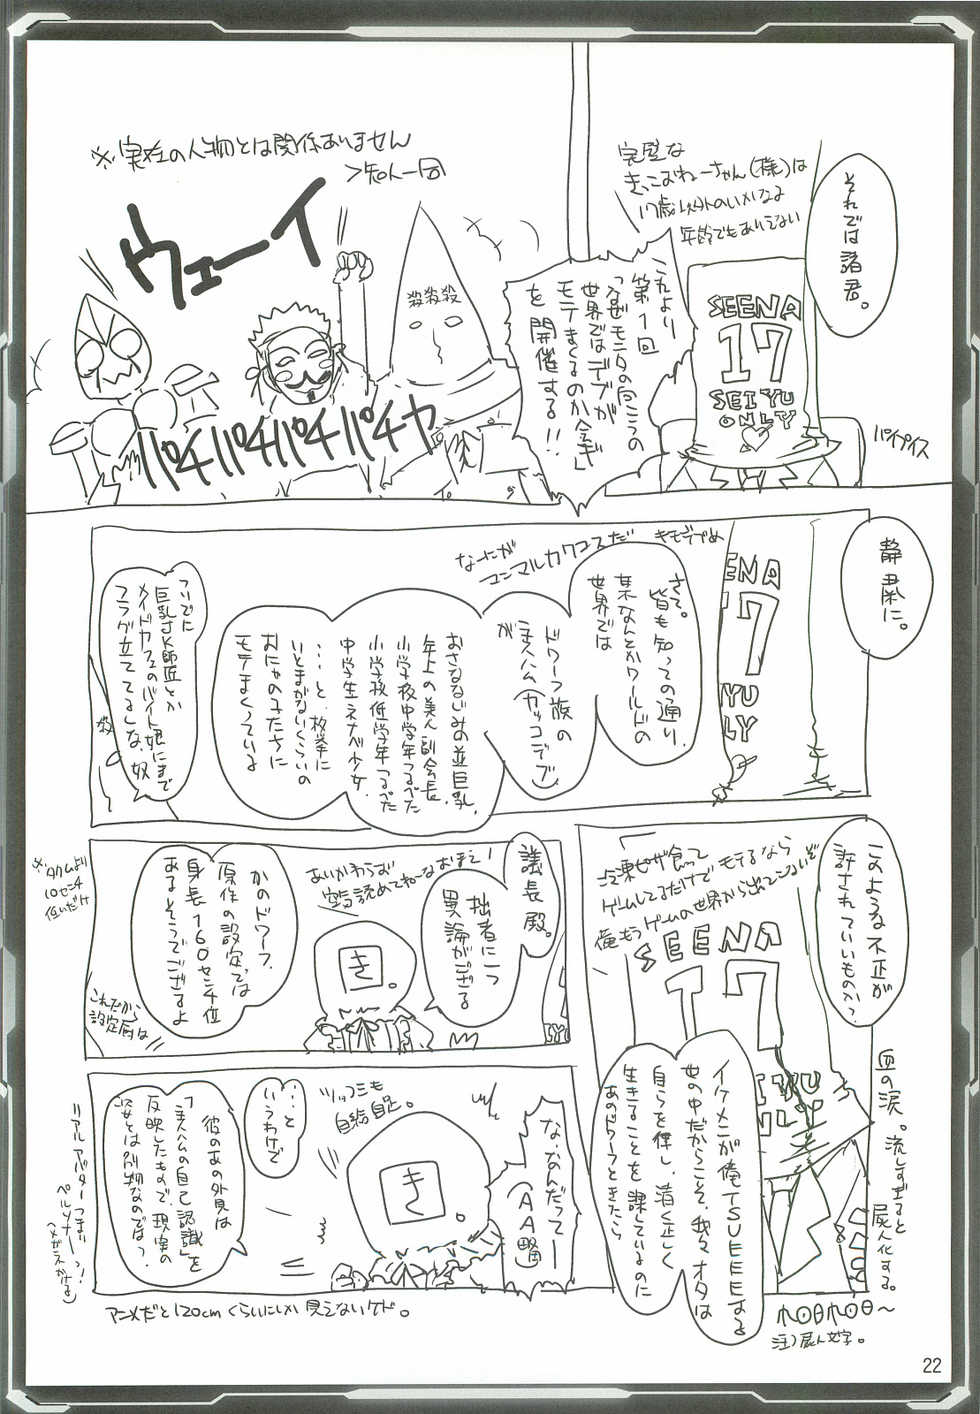 それでは諸君。
完璧な
きっこおねーちゃん(様)は
17歳以外のいかなる
年齢でもありえない
SEENA
17
SEIYU
ONLY
パイプイス
これより
第1回
「なぜモニタの向こうの
世界ではデブが
モテまくるのか会ギ」
を開催する!!
殺殺殺
※実在の人物とは関係ありません
>知人一同
ウェーイ
パチパチパチパチャ
静粛に。
ENA
17
IYU
LY
なにが
コニマルカワコスだ
キモデブめ
さて。
皆も知っての通り、
某なんとかワールドの
世界では
ドワーフ族の
主人公(カッコデブ)
が
おさななじみの並巨乳、
年上の美人副会長、
小学校中学年つるぺた
小学校低学年つるぺた
中学生ネナベ少女、
……と、枚挙に
いとまがないくらいの
おにゃの子たちに
モテまくっている
ついでに
巨乳JK師匠とか
メイドカフェのバイト娘にまで
フラグ立ててるしな、奴
このような不正が
許されていいものか?
冷凍ピザ食って
ゲームしてるだけでモテるなら
俺もうゲームの世界から出てこないぞ
SEENA
17
イケメンが俺TSUEEEEする
世の中だからこそ、我々オタは
自らを律し、清く正しく
生きることを課しているのに
あのドワーフときたら
血の涙。流しすぎると
屍人化する。
注)屍人文字。
議長殿。
拙者に一つ
異論がござる
あいかわらず
空気読めてねーなおまえ!
き。
かのドワーフ、
原作の設定では
身長160センチ位
あるそうでござるよ
※タクムより
10センチ
低いだけ
これだから
設定厨は
な、なんだってー
(AA略)
ツッコミも
自給自足。
き。
……と
いうわけで
彼のあの外見は
「主人公の自己認識」を
反映したもので、現実の
姿とは別物なのでは?
リアルアバターつまりっ!
ペルソナーっ!
(メガネかける)
アニメだと120cmくらいにしか見えないケド。
22